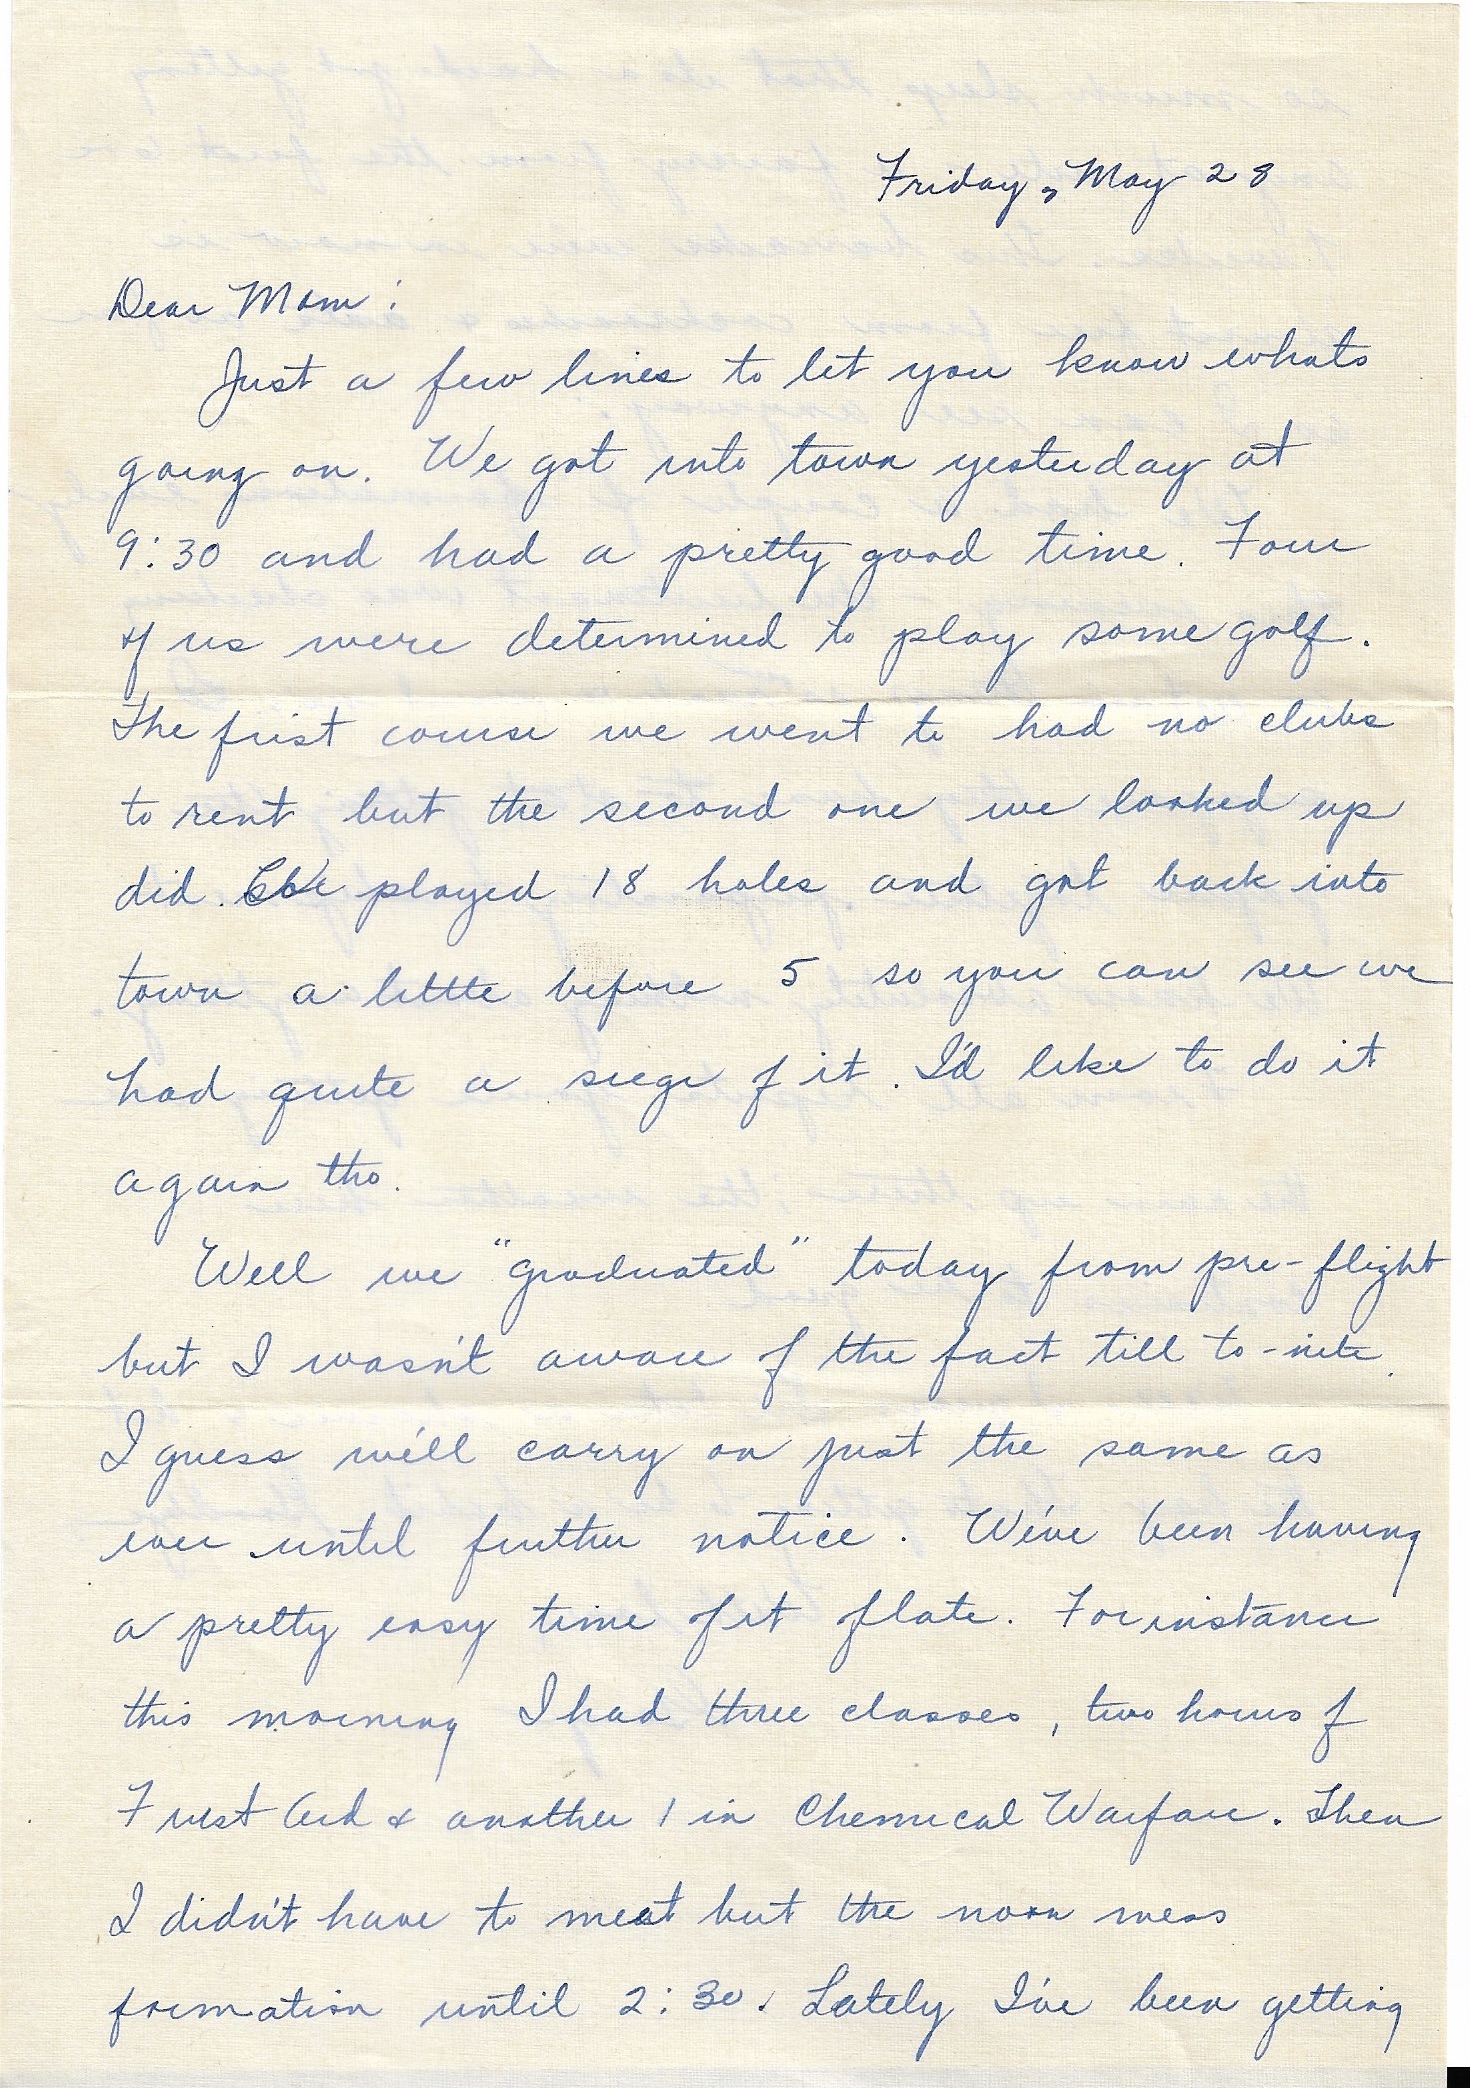 Friday, May 28
Dear Mom:
Just a few lines to let you know whats
going on. We got into town yesterday at
9:30 and had a pretty good time. Four
of us were determined to play some golf.
The first course we went to had no clubs
to rent but the second one we looked up
did. We played 18 holes and got back into
town a little before 5 so you can see we
had quite a siege of it. I'd like to do it
again tho.
Well we "graduated" today from pre-flight
but I wasn't aware of the fact till to-nite.
I guess we'll carry on just the same as
ever until further notice. We've been having
a pretty easy time of it of late. For instance
this morning I had three classes, two hours of
First Aid & another 1 in Chemical Warfare. Then
I didn't have to meet but the noon mess
formation until 2:30. Lately I've been getting